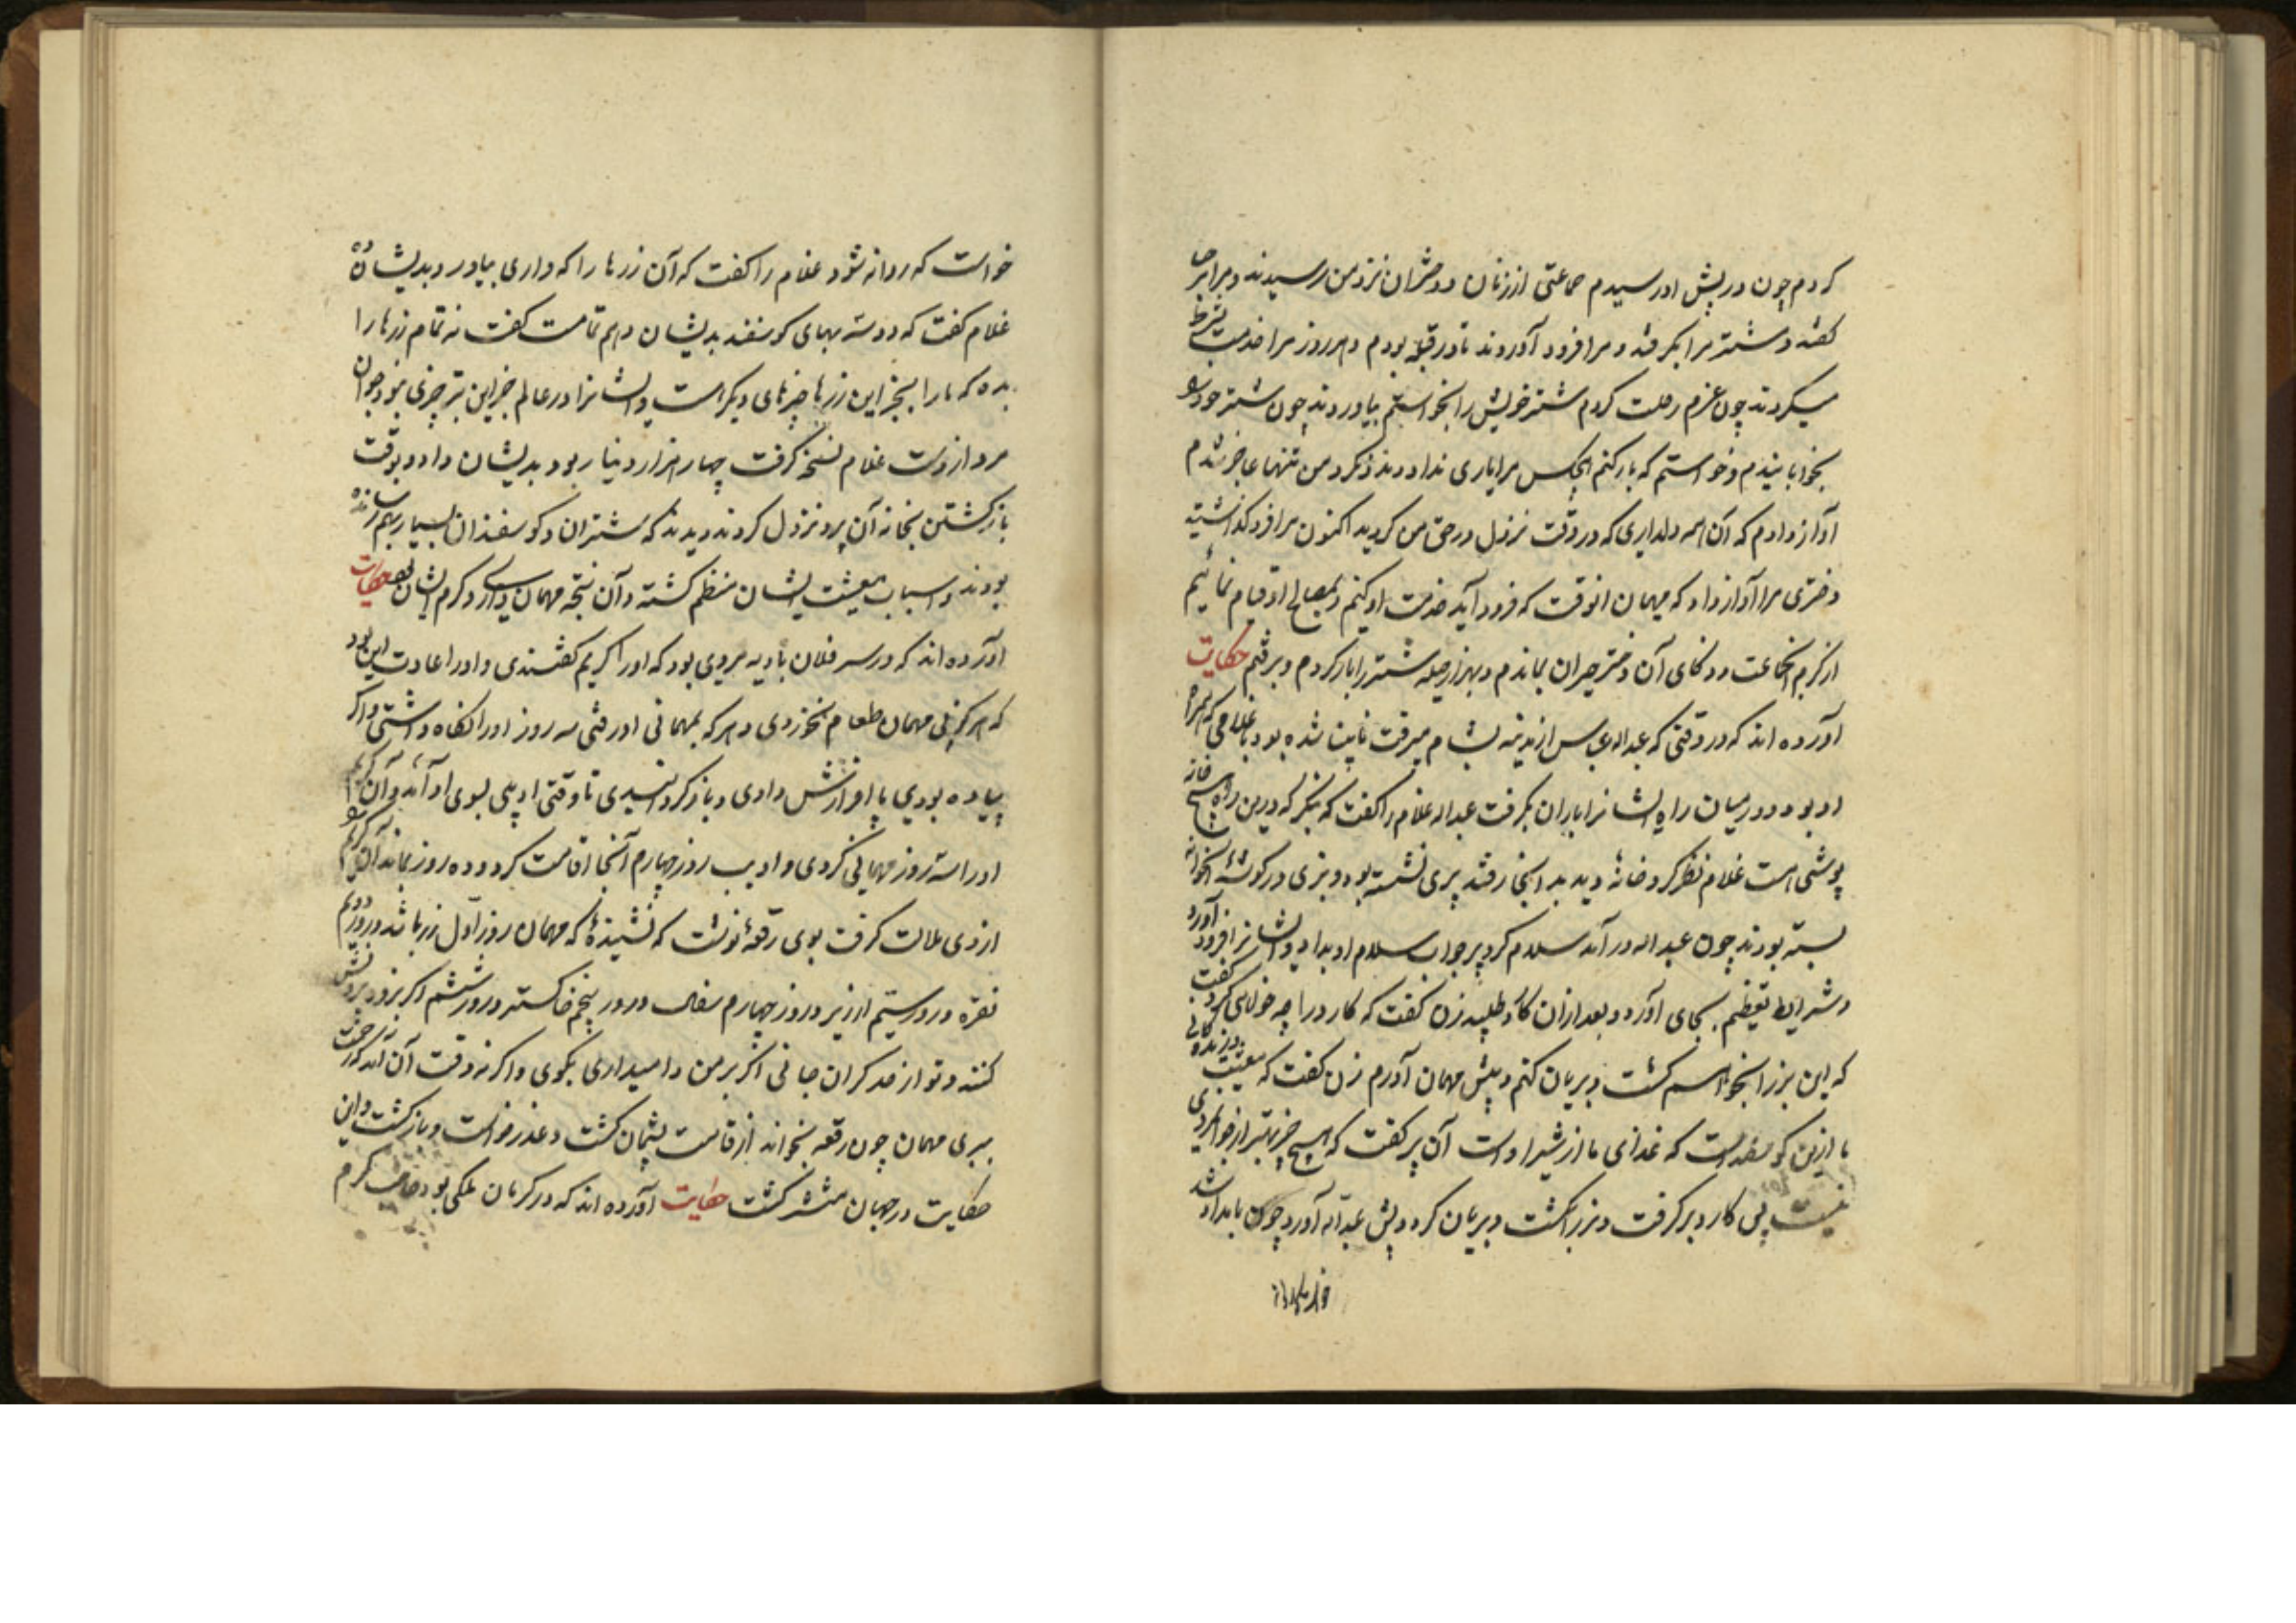 کردم چون در پیش او رسیدم جماعتی از زنان و دختران نزد من رسیدند و مرا مرحبا
گفته و شتر مرا بگرفته و مرا فرود آوردند تا در قبّه بودم و هر روز مرا خدمت
میکردند چون عزم رحلت کردم شتر خویش را بخواستم بیاوردند چون شتر خود را
بخوابانیدم و خواستم که بار کنم هیچکس مرا یاری نداد و مدد نکرد من تنها عاجز شدم
آواز دادم که آن همه دلداری که در وقت نزول در حق من کردید اکنون مرا فرو گذاشتید
دختری مرا آواز داد که میهمان انوقت که فرود آید خدمت او کنیم و بمصالح او قیام نمائیم
از کرم انجماعت و ذکای آن دختر حیران بماندم و بهزار حیله شتر را بار کردم و برفتم حکایت
آورده اند که در وقتی که عبداله عباس از مدینه بشام میرفت نابینا شده بود با غلامی که همراه
او بود و در میان راه ایشانرا باران بگرفت عبداله غلام را گفت که بنگر که درین راه هیچ خانه
پوششی است غلام نظر کرد خانهٔ دید بدانجا رفتند پیری نشسته بود و بزی در گوشهٔ انخانه
بسته بودند چون عبداله در آمد سلام کرد پیر جواب سلام او بداد و ایشانرا فرود آورد
و شرایط تعظیم بجای آورد و بعد از ان کارد طلبید زن گفت که کارد را چه خواهی کرد گفت
که این بز را بخواهم کشت و بریان کنم و پیش مهمان آورم زن گفت که معیشت و زندگانی
ما ازین گوسفند است که غذای ما از شیر اوست آن پیر گفت که هیچ چیز بهتر از جوانمردی
نیست پس کارد بر گرفت و بز را بکشت و بریان کرد و پیش عبداله آورد چون بامداد شد
خواست که روانه شود غلام را گفت که آن زرها را که داری بیاور و بدیشان ده
غلام گفت که دو سه بهای گوسفند بدیشان دهم تمامست گفت نه تمام زرها را
بده که ما را بجز این زرها چیزهای دیگر است و ایشانرا در عالم جز این بز چیزی نبود جوان
مرد از دست غلام نسخه گرفت چهار هزار دینار بود بدیشان داد و بوقت
باز گشتن بخانه آن پیر نزول کردند دیدند که شتران و گوسفندان بسیار بهم رسانده
بودند و اسباب معیشت ایشان منظم گشته و آن نتیجه مهمان داری و کرم ایشان بود حکایت
آورده اند که در سر فلان بادیه مردی بود که او را کریم گفتندی و او را عادت این بود
که هرگز بی مهمان طعام نخوردی و هر که بمهمانی او رفتی سه روز او را نگاه داشتی و اگر
پیاده بودی پا افزارش دادی و باز گردانیدی تا وقتی ادیبی بسوی او آمد و آن کریم
او را سه روز مهمانی کردی و ادیب روز چهارم آنجا اقامت کرد و ده روز بماند آن کریم را
از وی ملالت گرفت بوی رقعهٔ نوشت که نشنیدهٔ که مهمان روز اول زر باشد و روز دویم
نقره و روز سیّم ارزیز و روز چهارم سفال و روز پنجم خاکستر و روز ششم اگر نرود بزورش
کنند و تو از حد گران جانی اگر بر من وامی داری بگوی و اگر نه وقت آن آمد که زحمت
ببری مهمان چون رقعه بخواند از اقامت پشیمان گشت و عذر خواست و باز گشت و این
حکایت در جهان منتشر گشت حکایت آورده اند که در کرمان ملکی بود صاحب کرم